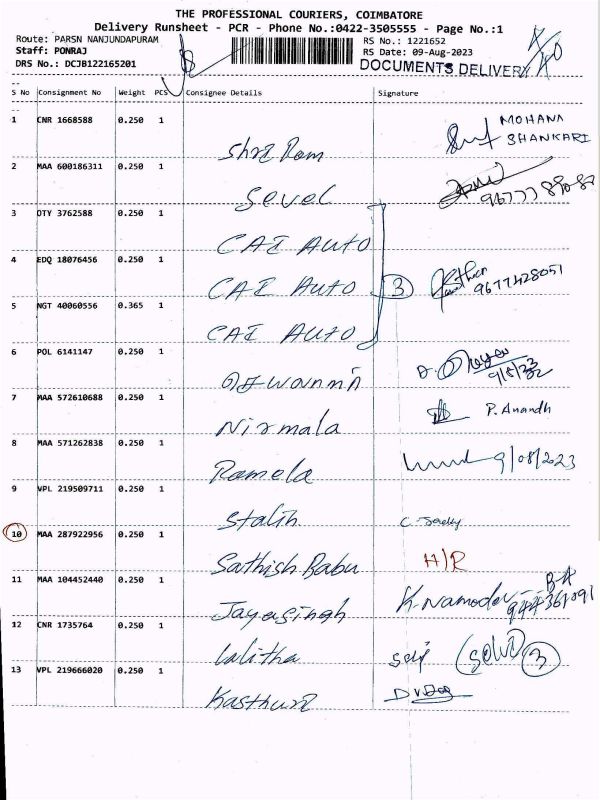 THE PROFESSIONAL COURIERS, COIMBATORE
Delivery Runsheet - PCR - Phone No.:0422-3505555 - Page No.:1
Route: PARSN NANJUNDAPURAM
RS No.: 1221652
Staff: PONRAJ
RS Date: 09-Aug-2023
DRS No.: DCJB122165201
DOCUMENTS DELIVERY
S No Consignment No Weight PCS Consignee Details Signature
1 CNR 1668588 0.250 1
MOHANA
SHANKARI
Shri Ram
2 MAA 600186311 0.250 1
Sevel
3 DTY 3762588 0.250 1
CAI Auto
4 EDQ 18076456 0.250 1
CAI Auto 3 9677428051
5 NGT 40060556 0.365 1
CAI Auto
6 POL 6141147 0.250 1
7 MAA 572610688 0.250 1
P. Anandh
Nirmala
8 MAA 571262838 0.250 1
9/08/2023
Ramela
9 VPL 219509711 0.250 1
Stalin
10 MAA 287922956 0.250 1
Sathish Babu H/R
11 MAA 104452440 0.250 1
Jayasingh
12 CNR 1735764 0.250 1
Lalitha 3
13 VPL 219666020 0.250 1
Kasthuri